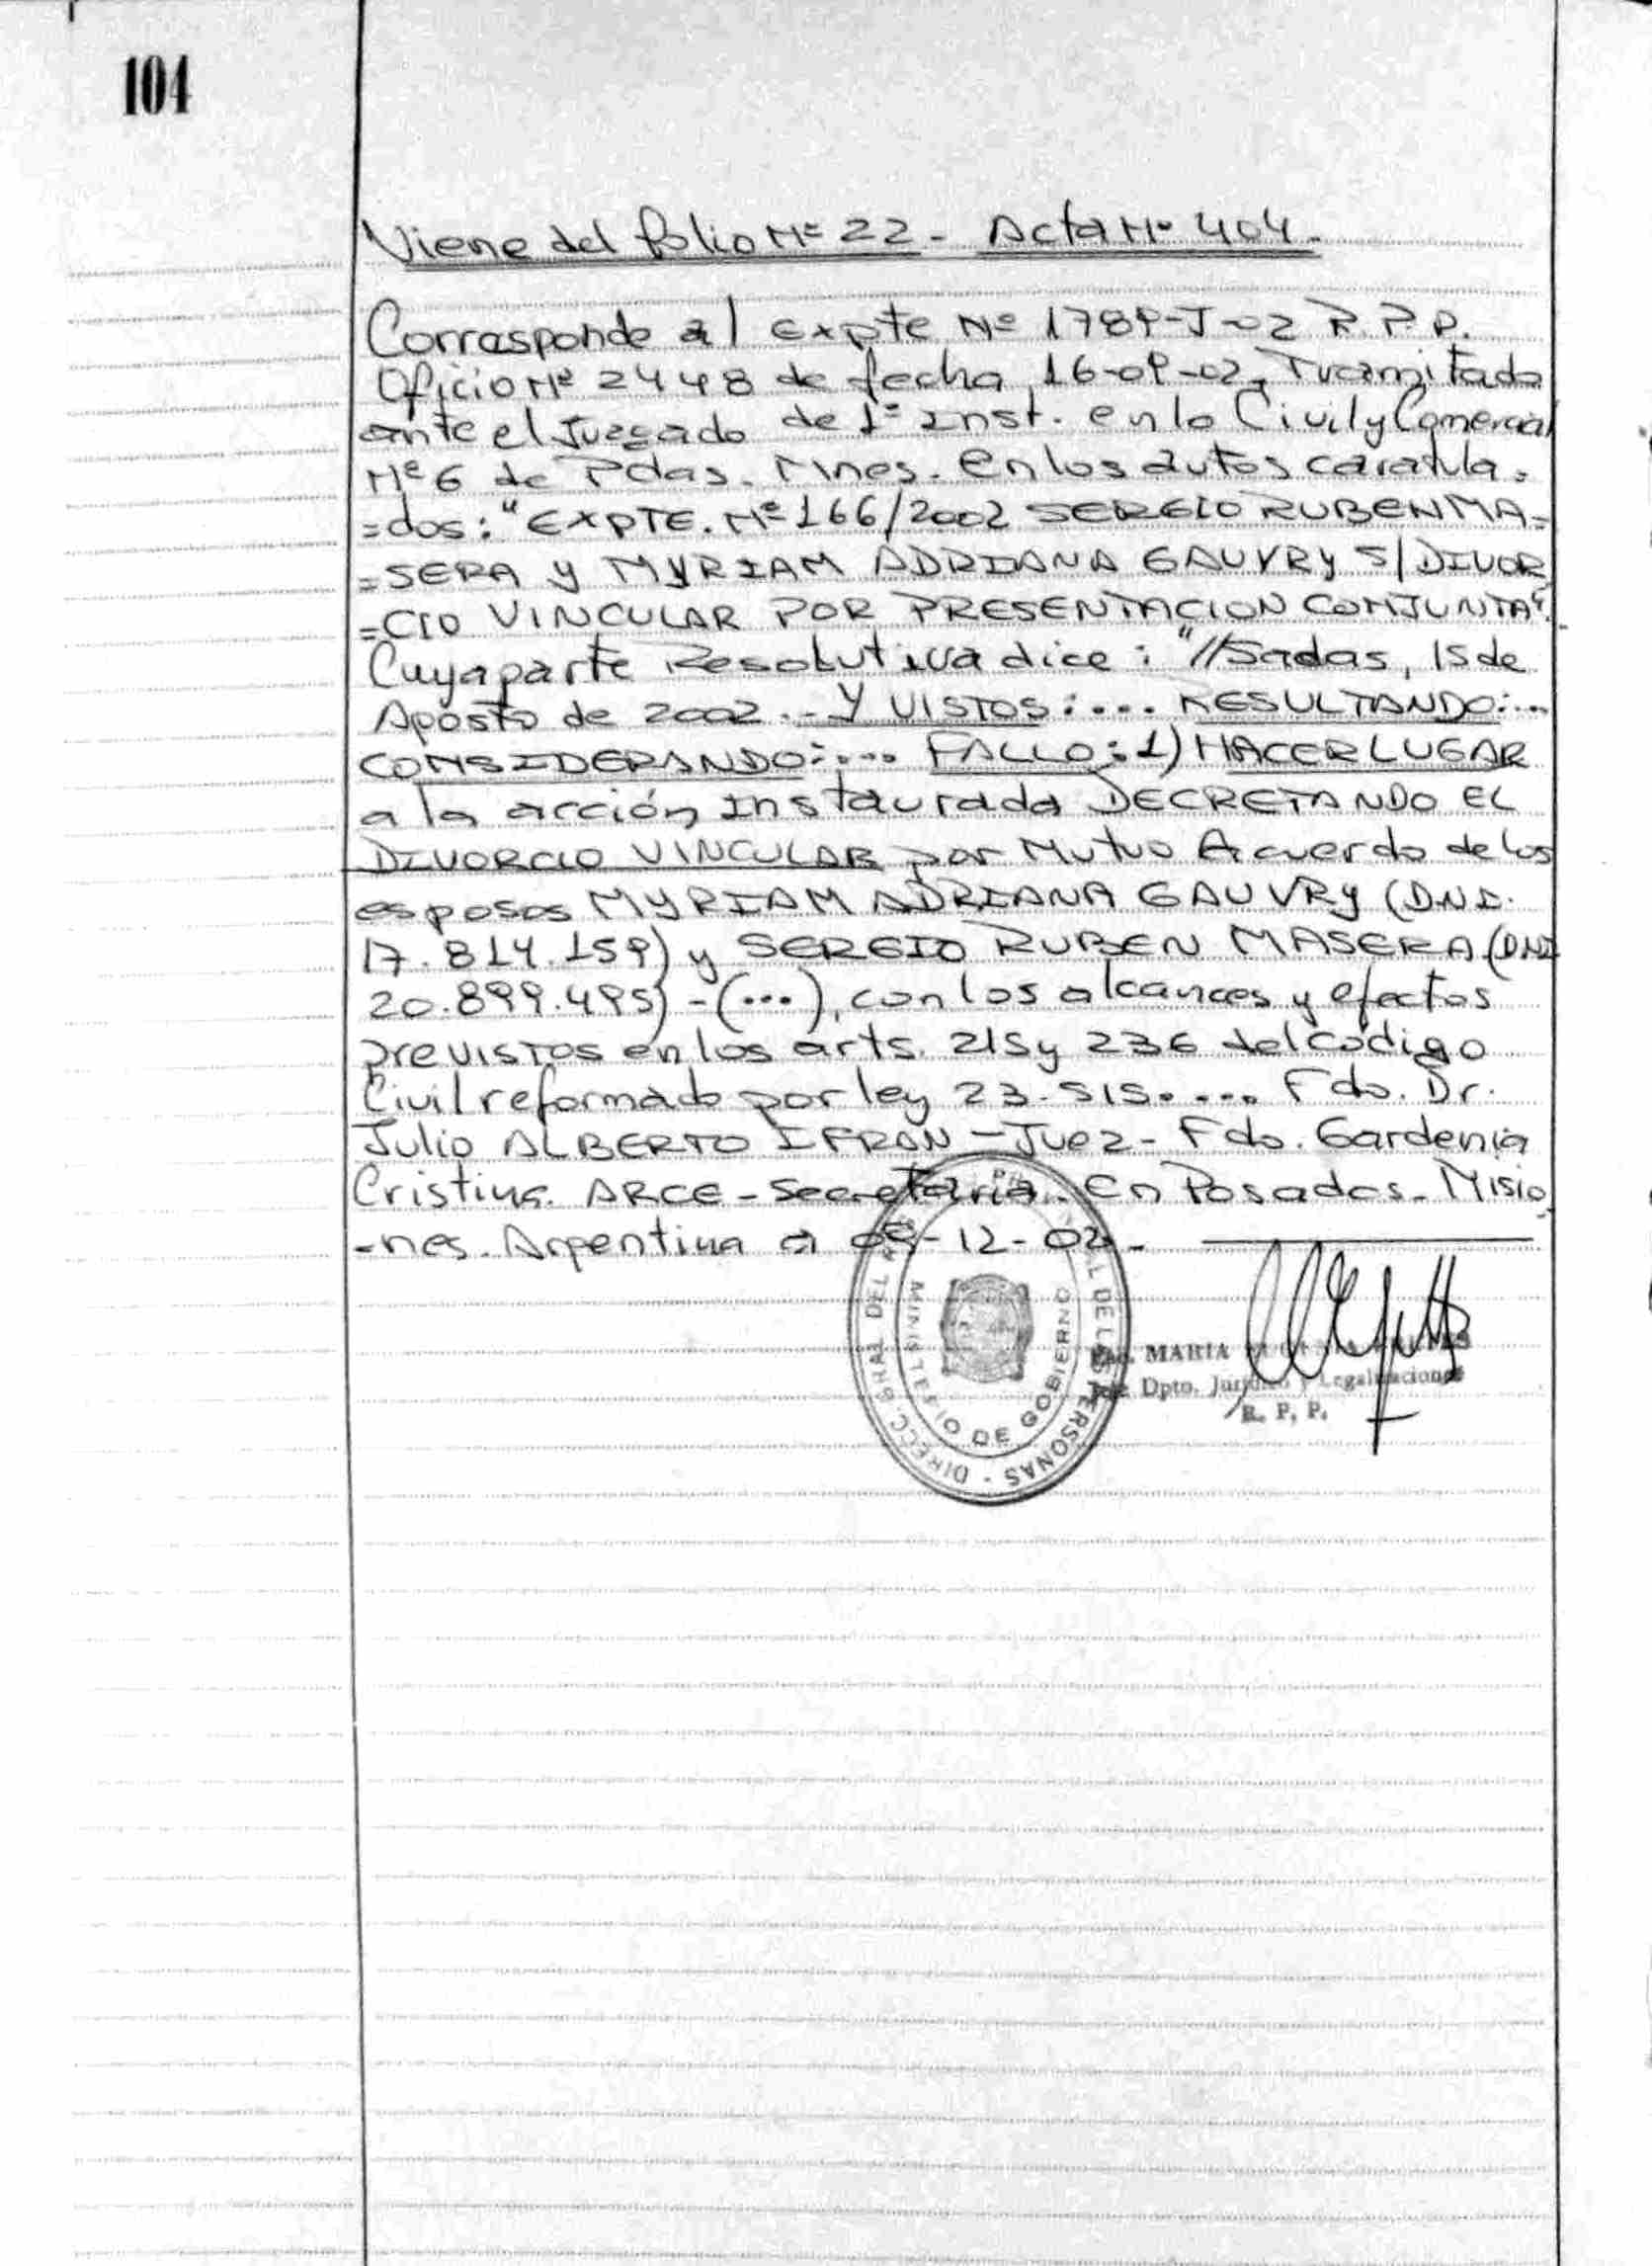 104
Viene del folio Nº 22 - Acta Nº 404.
Corresponde al Expte Nº 1789-J-02 R.P.P.
Oficio Nº 2448 de fecha 16-09-02, Tramitado
ante el Juzgado de 1ª Inst. en lo Civil y Comercial
Nº 6 de Pdas. Mnes. en los autos caratula=
=dos: "EXPTE. Nº 166/2002 SERGIO RUBEN MA=
=SERA Y MYRIAM ADRIANA GAUVRY S/DIVOR
=CIO VINCULAR POR PRESENTACION CONJUNTA".
Cuya parte Resolutiva dice: "//Sadas, 15 de
Agosto de 2002.- Y VISTOS:... RESULTANDO:...
CONSIDERANDO:... FALLO: 1) HACER LUGAR
a la acción Instaurada DECRETANDO EL
DIVORCIO VINCULAR por Mutuo Acuerdo de los
esposos MYRIAM ADRIANA GAUVRY (DNI.
17.814.159) y SERGIO RUBEN MASERA (DNI
20.899.495) - (...), con los alcances y efectos
previstos en los arts. 215 y 236 del código
Civil reformado por ley 23.515.... Fdo. Dr.
Julio ALBERTO IFRAN - Juez - Fdo. Gardenia
Cristina ARCE - Secretaria. En Posadas - Misio
-nes. Argentina a -12-02.-
DIRECC. GRAL DEL DE LAS PERSONAS
MINISTERIO DE GOBIERNO
MARIA
Jefe Dpto. Jurídico y Legalizaciones
R. P. P.